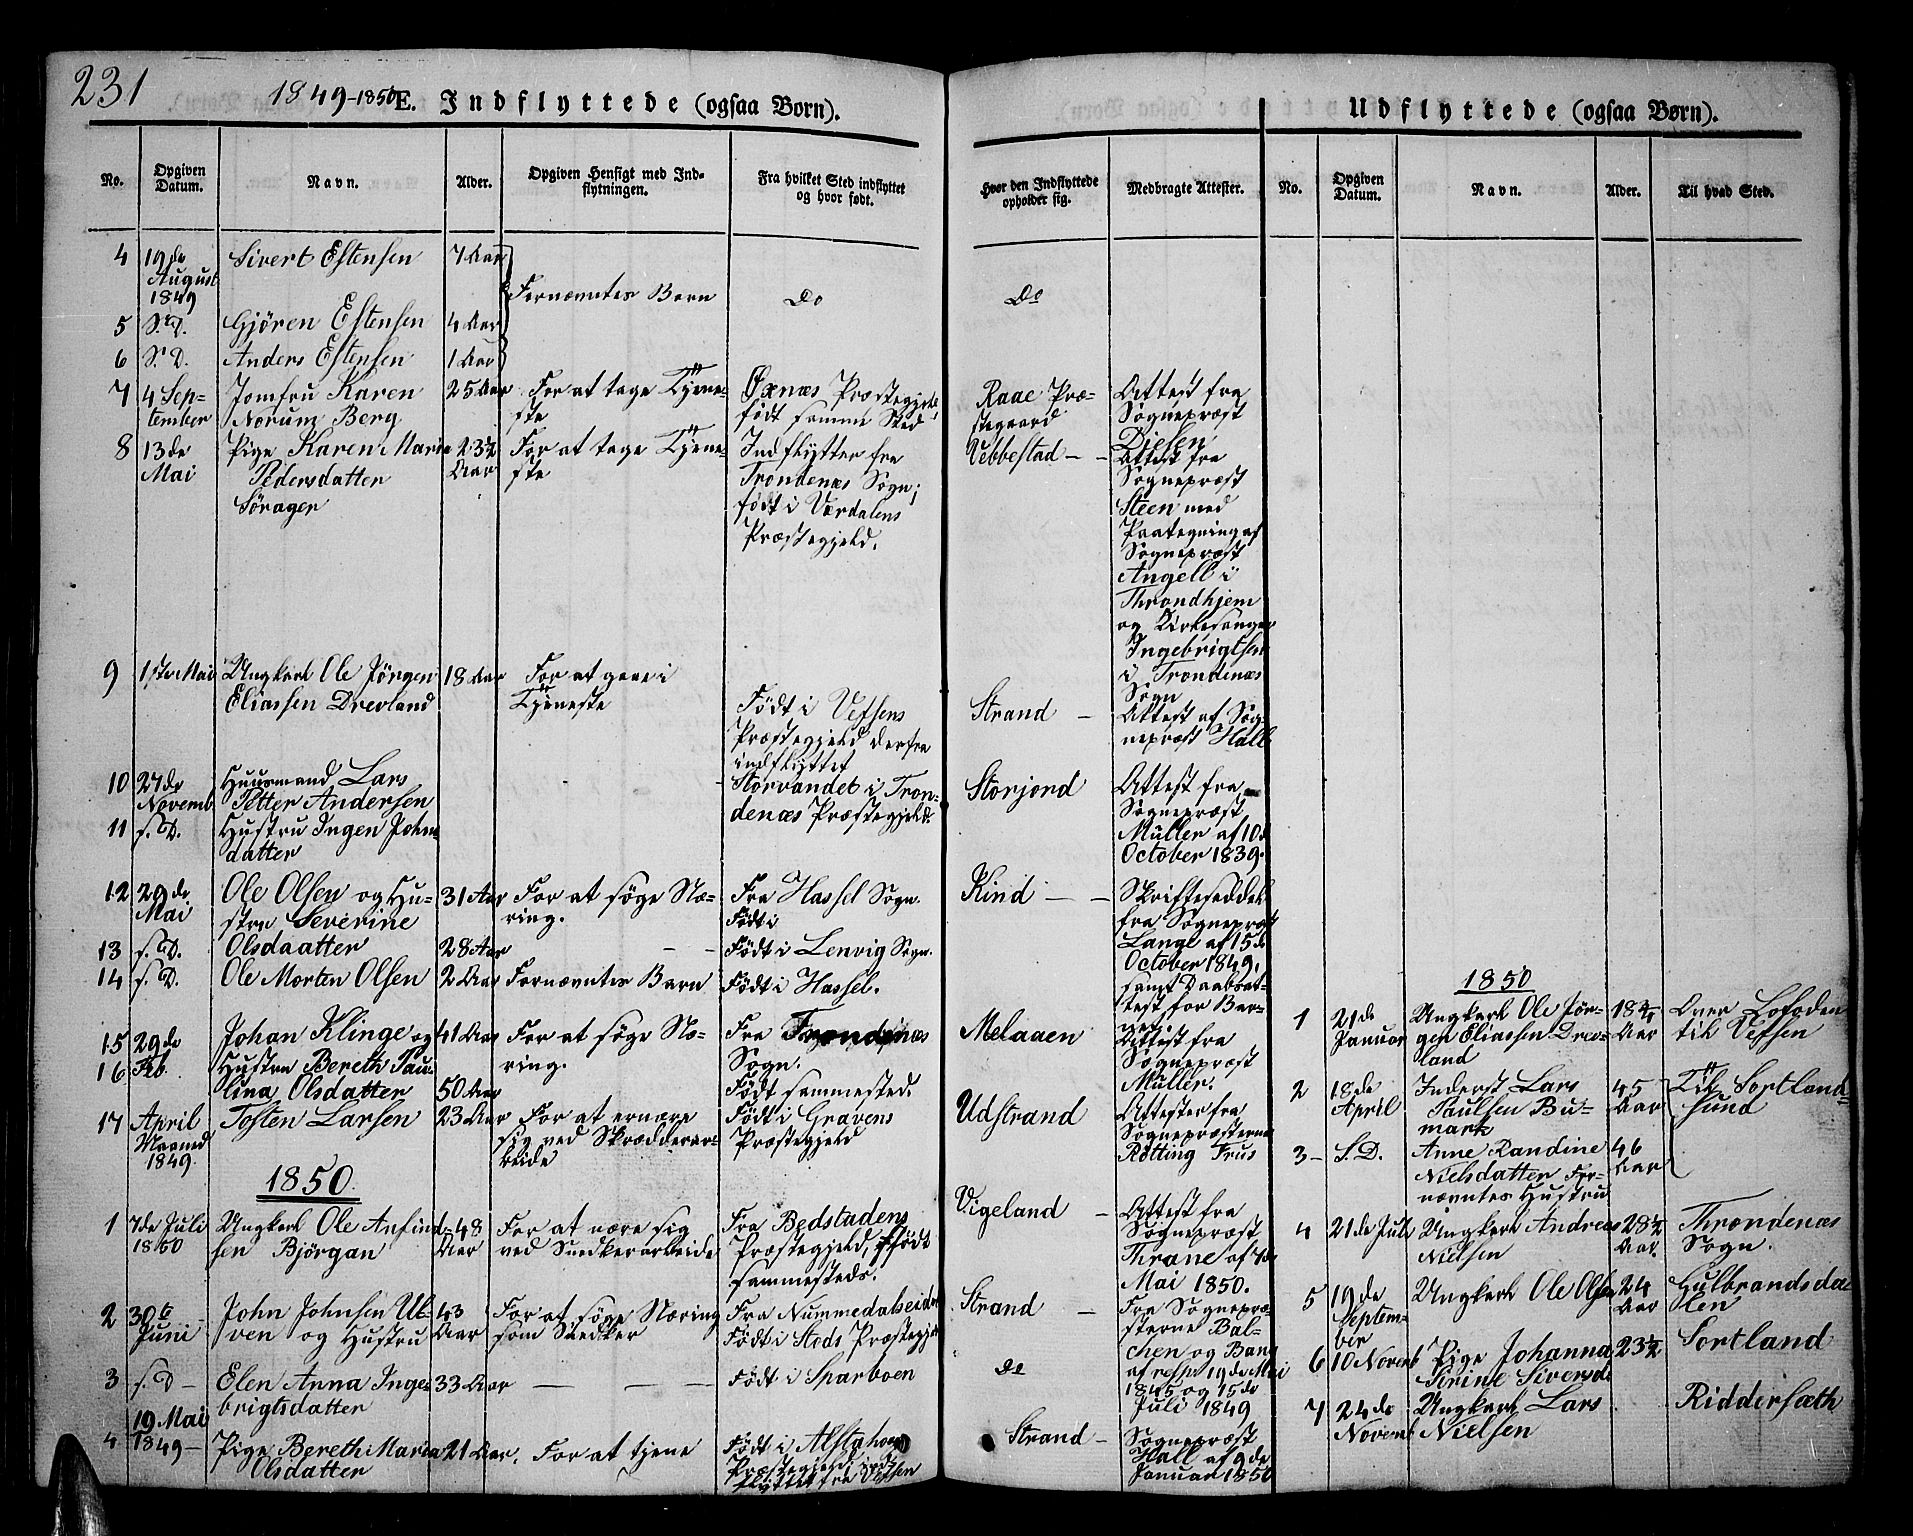 231
1849-1850 E. Indflyttede (ogsaa Børn).
No.
Opgiven Datum.
Navn.
Alder.
Opgiven Hensigt med Ind-
flytningen.
Fra hvilket Sted indflyttet
og hvor født.
4 19de August 1849 Sivert Estensen 7 Aar Fornævntes Børn Do
5 S. D. Gjören Estensen 4 Aar
6 S. D. Anders Estensen 1 Aar
7 4 Sep- Jomfru Karen 25 Aar For at tage Tjene- Øxnæs Præstegjeld
tember Norum Berg ste født samme Sted
8 13de Pige Karen Marie 23½ For at tage Tjene- Indflytter fra
Mai Pedersdatter Aar ste Trondenæs Sogn;
Sörager født i Værdalens
Præstegjeld.
9 1ste Mai Ungkarl Ole Jörgen 18 Aar For at gaae i
Eliassen Drevland Tjeneste Født i Vefsens
Præstegjeld derfra
indflyttet
10 27de Huusmand Lars Storvandet i Tron-
Novemb Petter Andersen denæs Præstegjeld.
11 s. D. Hustru Ingen Johns
datter
12 29de Ole Olsen og Hu- 31 Aar For at søge Næ- Fra Hassel Sogn.
Mai stru Severine ring. Født i
13 s. D. Olsdaatter 28 Aar — — Født i Lenvig Sogn.
14 s. D. Ole Morten Olsen 2 Aar Fornævntes Barn Født i Hassel.
15 29de Johan Klinge og 41 Aar For at søge Næ- Fra Trondenæs
16 Feb. Hustru Bereth Pau- ring. Sogn.
lina Olsdatter 50 Aar Født sammested.
17 April Tosten Larsen 23 Aar For at ernære Født i Gravens
Maaned sig ved Skrædderar- Præstegjeld
1849. beide
1850.
1 7de Juli Ungkarl Ole Anfind- 48 For at nære sig Fra Bedstadens
1850 sen Björgan Aar ved Snedkerarbeide Præstegjeld, født
sammesteds.
2 30te John Johnsen Ul- 43 For at søge Næring Fra Nummedalseidet
Juni ven og Hustru Aar som Snedker Født i Stods Præstegjeld
3 s. D — Elen Anna Inge- 33 Aar — — — Født i Sparboen
brigtsdatter
19 Mai
4 1849 — Pige Bereth Maria 21 Aar. For at tjene Født i Alstahoug
Olsdatter Præstegjeld ind-
flyttet fra Vefsen
Hvor den Indflyttede
opholder sig.
Medbragte Attester.
Do
Raae Præ- Attest fra
stegaard Sognepræst
Dielen
Vebbestad — — Attest fra
Sognepræst
Steen med
Paategning af
Sognepræst
Angell i
Throndhjem
og Kirkesanger
Ingebrigtsen
i Trondenæs
Sogn
Strand — Attest af Sog-
nepræst Hall
Storjord Attest fra
Sognepræst
Müller af 10de
October 1839.
Kind — — Skrifteseddel
fra Sognepræst
Lange af 15de
October 1849,
samt Daabsat-
test for Bar-
net
Melaaen Attest fra
Sognepræst
Müller.
Udstrand Attester fra
Sognepræsterne
Rötting Frus
Vigeland — Attest fra
Sognepræst
Thrane af 7de
Mai 1850.
Strand — Fra Sognepræ-
sterne Bal-
chen og Bang
do af resp. 19de Mai
1845 og 15de
Juli 1849
Strand — Sognepræst
Hall af 9de
Januar 1850
Udflyttede (ogsaa Børn).
No.
Opgiven Datum.
Navn.
Alder.
Til hvad Sted.
1850
1 21de Ungkarl Ole Jör- 18¾ Over Lofoden
Januar gen Eliassen Drev- Aar til Vefsen
land
2 18de Inderst Lars 45 Til Sortland-
April Paulsen Bu- Aar sund
mark
3 — S. D. Anne Randine 46
Nielsdatter For- Aar
nævntes Hustru
4 21de Juli Ungkarl Andreas 28½ Throndenæs
Nielsen Aar. Sogn.
5 19de Ungkarl Ole Olsen 24 Gulbrandsda-
Septem- Aar len
ber
6 10 Novemb Pige Johanna 23½ Sortland
Sirine Siversd.
7 24de Ungkarl Lars Riddersæth
Novemb Nielsen